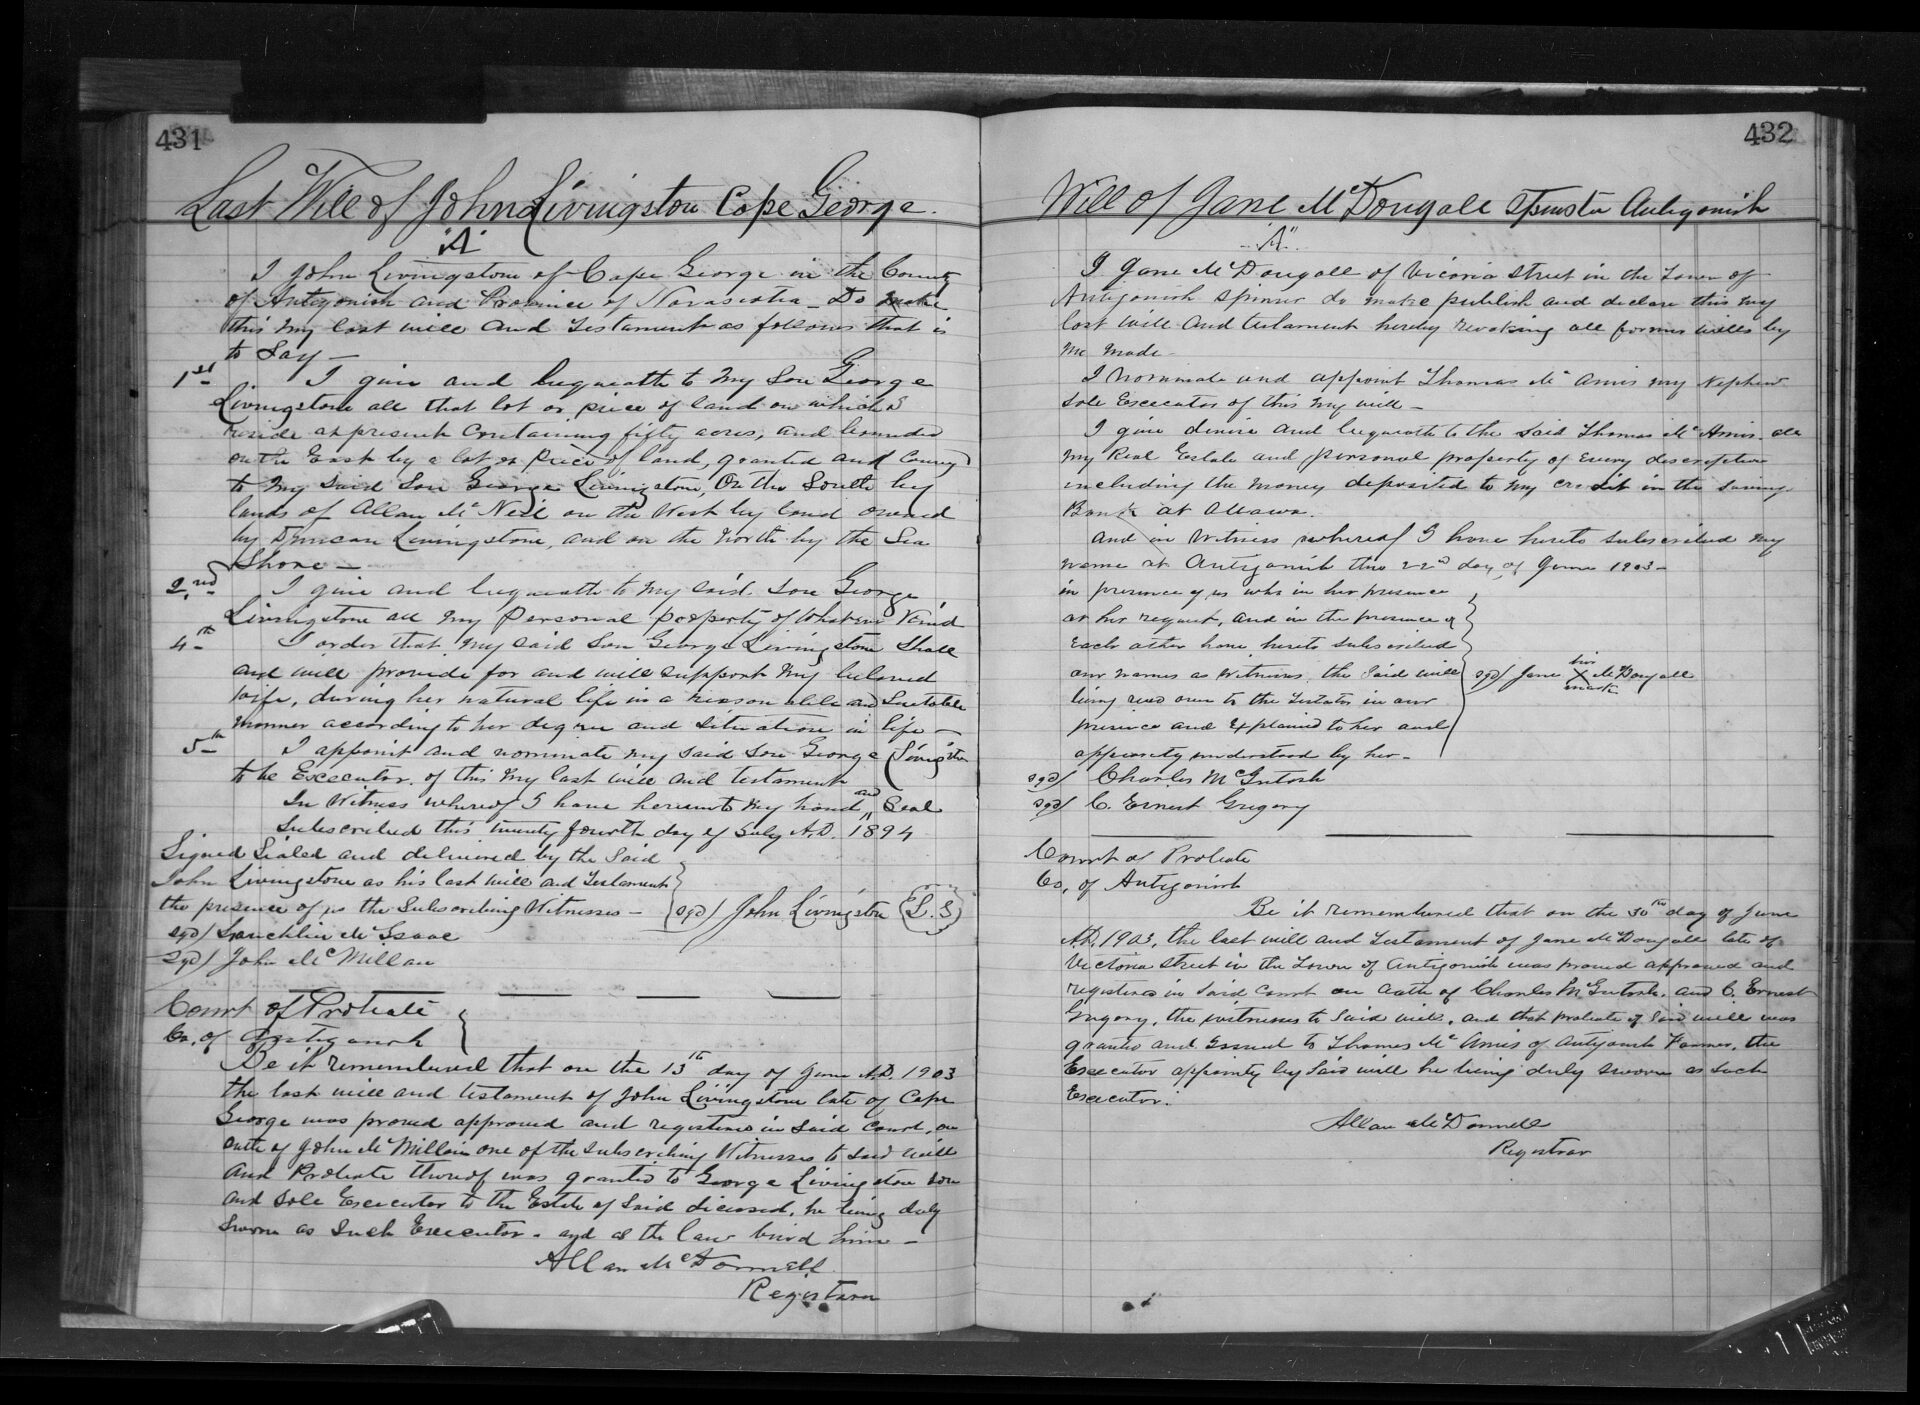 431
Last Will of John Livingston Cape George.
"A"
I John Livingstone of Cape George in the County
of Antigonish and Province of Novascotia - Do make
this my last will and Testament as follows that is
to Say -
1st I give and bequeath to my Son George
Livingstone all that lot or piece of land on which I
reside at present Containing fifty acres, and bounded
on the East by a lot or piece of land, granted and Convey'd
to my said Son George Livingstone, On the South by
lands of Allan McNeil on the West by land owned
by Duncan Livingstone, and on the North by the Sea
Shore -
2nd I give and bequeath to my said Son George
Livingstone all my Personal property of Whatever Kind
4th I order that my said Son George Livingstone Shall
and will provide for and will support my beloved
wife, during her natural life in a reasonable and Suetable
manner according to her degree and Situation in life -
5th I appoint and nominate my said Son George Livingston
to be Executor of this my last will and testament
In Witness whereof I have hereunto my hand and Seal
Subscribed this twenty fourth day of July A.D. 1894
Signed Sealed and delivered by the Said
John Livingstone as his last will and Testament
the presence of us the Subscribing Witnesses -
sgd/ John Livingston L.S
sgd/ Lauchlin McIsaac
sgd/ John McMillan
Court of Probate
Co. of Antigonish
Be it remembered that on the 13th day of June A.D. 1903
the last will and testament of John Livingstone late of Cape
George was proved approved and registered in Said Court, on
oath of John McMillan one of the Subscribing Witnesses to said will
And Probate thereof was granted to George Livingstone son
and sole Executor to the Estate of Said deceased, he being duly
Sworn as Such Executor. and as the law bind him -
Allan McDonnell
Registrar
432
Will of Jane McDougall Spinster Antigonish
"A"
I Jane McDougall of Vicoria Street in the Town of
Antigonish Spinser do make publish and declare this my
last will and testament hereby revoking all former wills by
me made -
I nominate and appoint Thomas McAmis my Nephew
sole Executor of this my will -
I give devise and bequeath to the said Thomas McAmis all
my Real Estate and personal property of Every descreption
including the money deposited to my credit in the Savings
Bank at Ottawa.
And in Witness whereof I have hereto subscribed my
name at Antigonish this 22nd day of June 1903 -
in presence of us who in her presence
at her request, and in the presence of
Each other have hereto subscribed
our names as Witnesses the said will
being read over to the Testator in our
presence and Explained to her and
apparently understood by her -
sgd/ Jane her X mark McDougall
sgd/ Charles McIntosh
sgd/ C. Ernest Gregory
Court of Probate
Co, of Antigonish
Be it remembered that on the 30th day of June
A.D. 1903, the last will and Testament of Jane McDougall late of
Victoria Street in the Town of Antigonish was proved approved and
registered in Said Court on Oath of Charles McIntosh. and C. Ernest
Gregory, the witnesses to Said will, and that probate of Said will was
granted and Issued to Thomas McAmis of Antigonish Farmer, the
Executor appointg by Said will he being duly sworn as such
Executor.
Allan McDonnell
Registrar